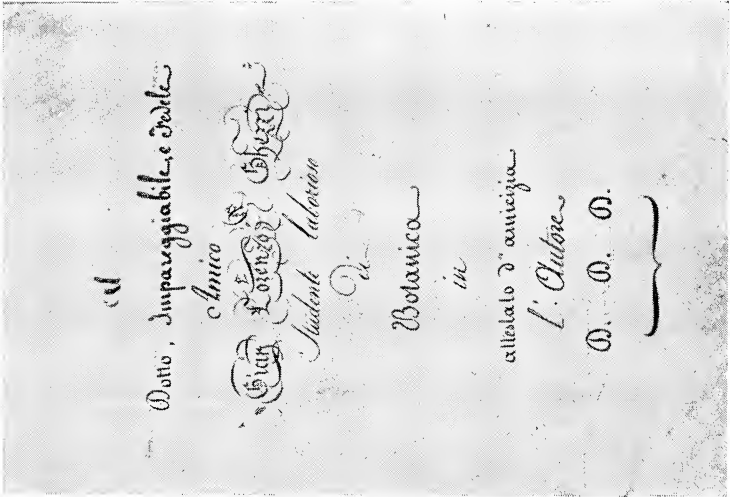 Al
Dotto, Impareggiabile, e Fedele
Amico
Gian Lorenzo Ghezzi
Studente laborioso
Di
Botanica
in
attestato d'amicizia
L'Autore
D. D. D.